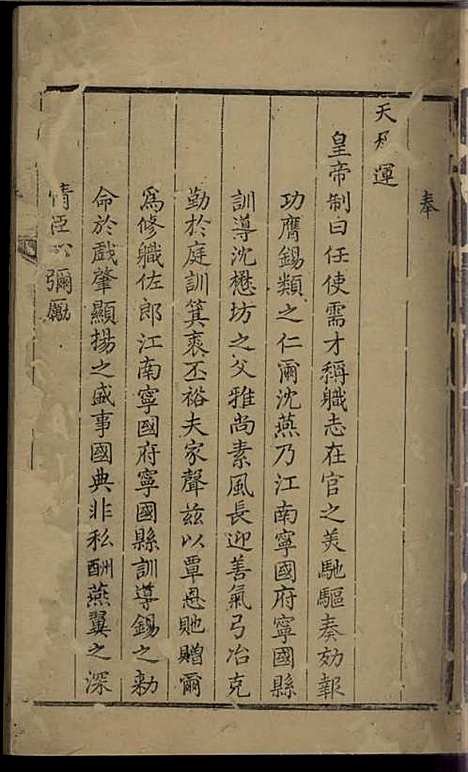 奉
天承運
皇帝制曰任使需才稱職志在官之美馳驅奏効報
功膺錫類之仁爾沈燕乃江南寧國府寧國縣
訓導沈懋坊之父雅尚素風長迎善氣弓冶克
勤於庭訓箕裘丕裕夫家聲茲以覃恩貤贈爾
為修職佐郎江南寧國府寧國縣訓導錫之勅
命於戲肇顯揚之盛事國典非私酬燕翼之深
情臣心彌勵